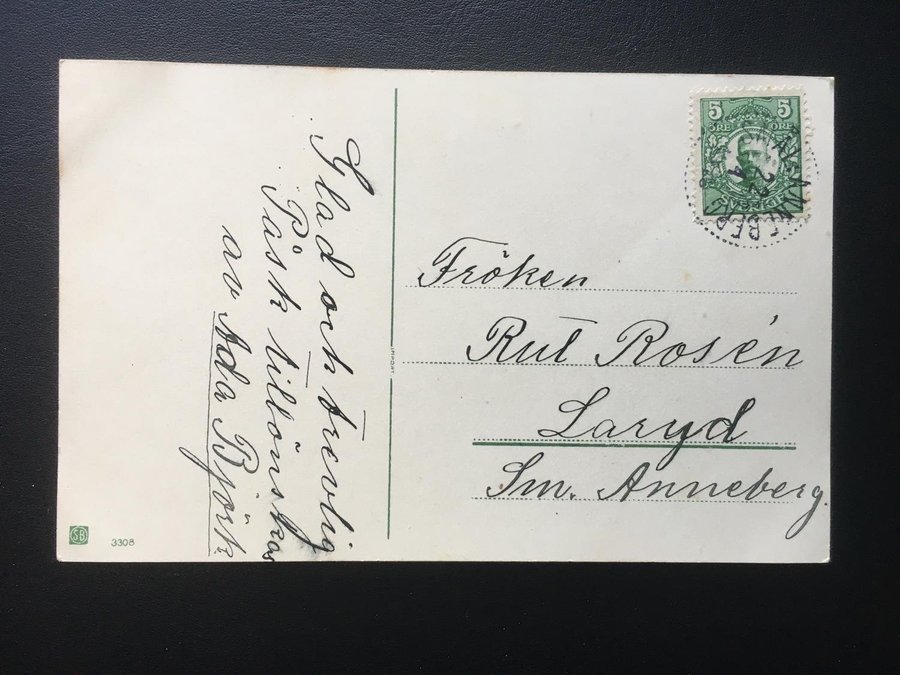 Glad och trevlig
Påsk tillönskas
av Ada Björk
5 5
ÖRE ÖRE
SVERIGE
Fröken
Rut Rosén
Laryd
Sm. Anneberg
IMPORT
SB
3308